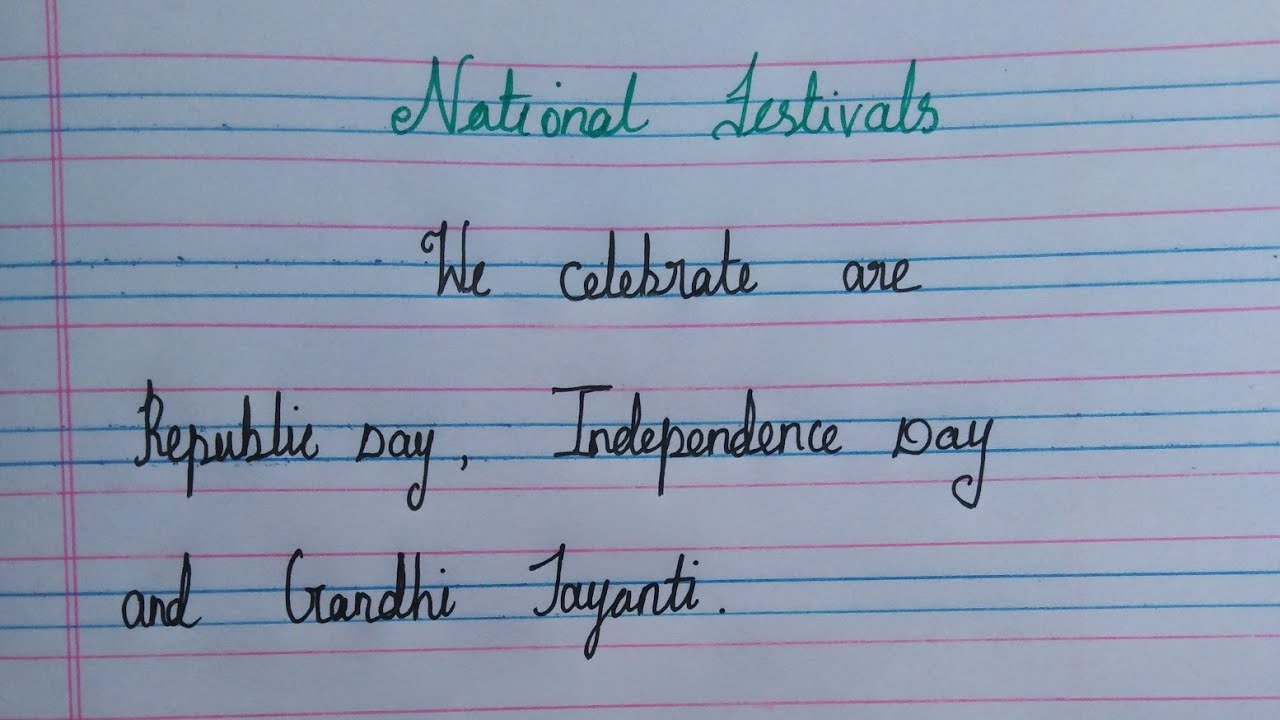 National Festivals
We celebrate are
Republic Day, Independence Day
and Gandhi Jayanti.